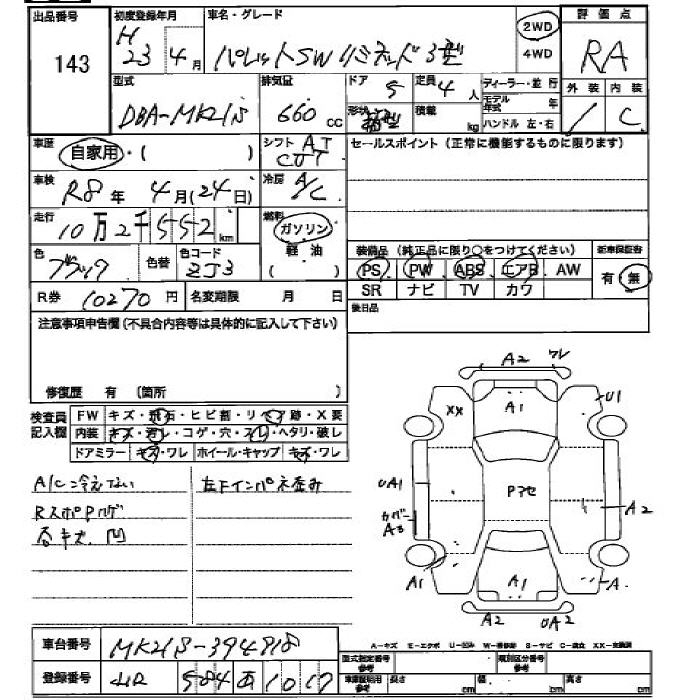 出品番号 初度登録年月 車名・グレード 評価点
143 H 23年4月 パレットSW リミテッド3型 2WD 4WD RA
型式 排気量 ドア 定員 ディーラー・並行 外装 内装
DBA-MK21S 660cc 5 4人 モデル年式 年 C
形状 箱型 積載 kg ハンドル 左・右
車歴 自家用・( ) シフト AT CVT セールスポイント(正常に機能するものに限ります)
車検 R8年4月(24日) 冷房 A/C
走行 10万2千552km 燃料 ガソリン
軽油
色 ブラック 色替 色コード ZJ3 ( ) 装備品(純正品に限り○をつけてください) 新車保証書
PS PW ABS エアB AW 有・無
R券 10270円 名変期限 月 日 SR ナビ TV カワ
注意事項申告欄(不具合内容等は具体的に記入して下さい) 後日品
修復歴 有 (箇所 )
検査員記入欄 FW キズ・飛石・ヒビ割・リペア跡・X要
内装 キズ・汚レ・コゲ・穴・スレ・ヘタリ・破レ
ドアミラー キズ・ワレ ホイール・キャップ キズ・ワレ
A/C冷えない 左下インパネ歪み
RスポPハゲ
各キズ、凹
A2 ワレ
A1
XX U1
UA1 Pアセ
カバー A3 A2
A1 A1 A
A2 UA2
車台番号 MK21S-394918
登録番号 584 あ 1017
A-キズ E-エクボ U-凹み W-補修跡 S-サビ C-腐食 XX-交換済
型式指定番号 参考 類別区分番号 参考
車庫証明用 参考 長さ cm 幅 cm 高さ cm